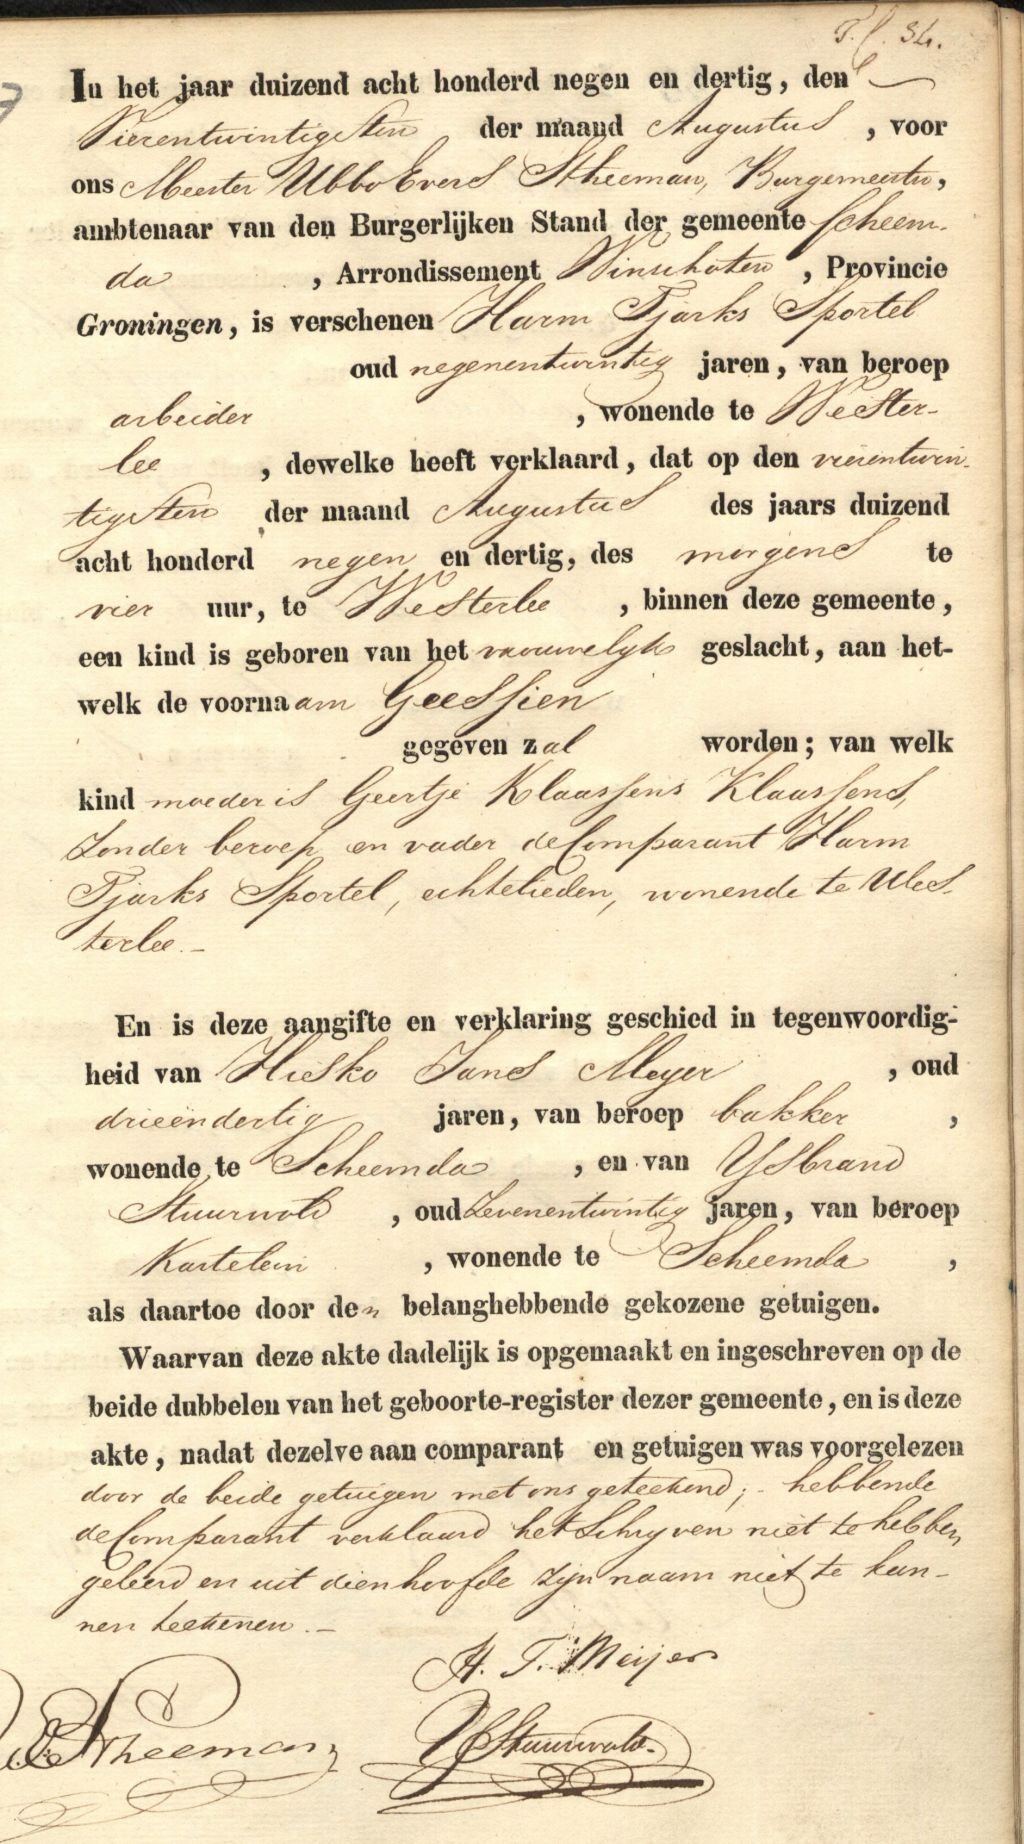 34.
In het jaar duizend acht honderd negen en dertig, den
Vierentwintigsten der maand Augustus, voor
ons Meester Ubbo Evers Stheeman, Burgemeester,
ambtenaar van den Burgerlijken Stand der gemeente Scheem-
da, Arrondissement Winschoten, Provincie
Groningen, is verschenen Harm Tjarks Sportel
oud negenentwintig jaren, van beroep
arbeider, wonende te Wester-
lee, dewelke heeft verklaard, dat op den vierentwin-
tigsten der maand Augustus des jaars duizend
acht honderd negen en dertig, des morgens te
vier uur, te Westerlee, binnen deze gemeente,
een kind is geboren van het vrouwelijk geslacht, aan het-
welk de voornaam Geessien
gegeven zal worden; van welk
kind moeder is Geertje Klaassens Klaassens,
zonder beroep en vader de Comparant Harm
Tjarks Sportel, echtelieden, wonende te Wes-
terlee.-
En is deze aangifte en verklaring geschied in tegenwoordig-
heid van Hisko Jans Meyer, oud
drieëndertig jaren, van beroep bakker,
wonende te Scheemda, en van Ysbrand
Stuurwold, oud zevenentwintig jaren, van beroep
Kastelein, wonende te Scheemda,
als daartoe door den belanghebbende gekozene getuigen.
Waarvan deze akte dadelijk is opgemaakt en ingeschreven op de
beide dubbelen van het geboorte-register dezer gemeente, en is deze
akte, nadat dezelve aan comparant en getuigen was voorgelezen
door de beide getuigen met ons geteekend; - hebbende
de Comparant verklaard het schryven niet te hebben
geleerd en uit dien hoofde zyn naam niet te kun-
nen teekenen.-
H. J. Meijer
Stheeman
Y Stuurwold.